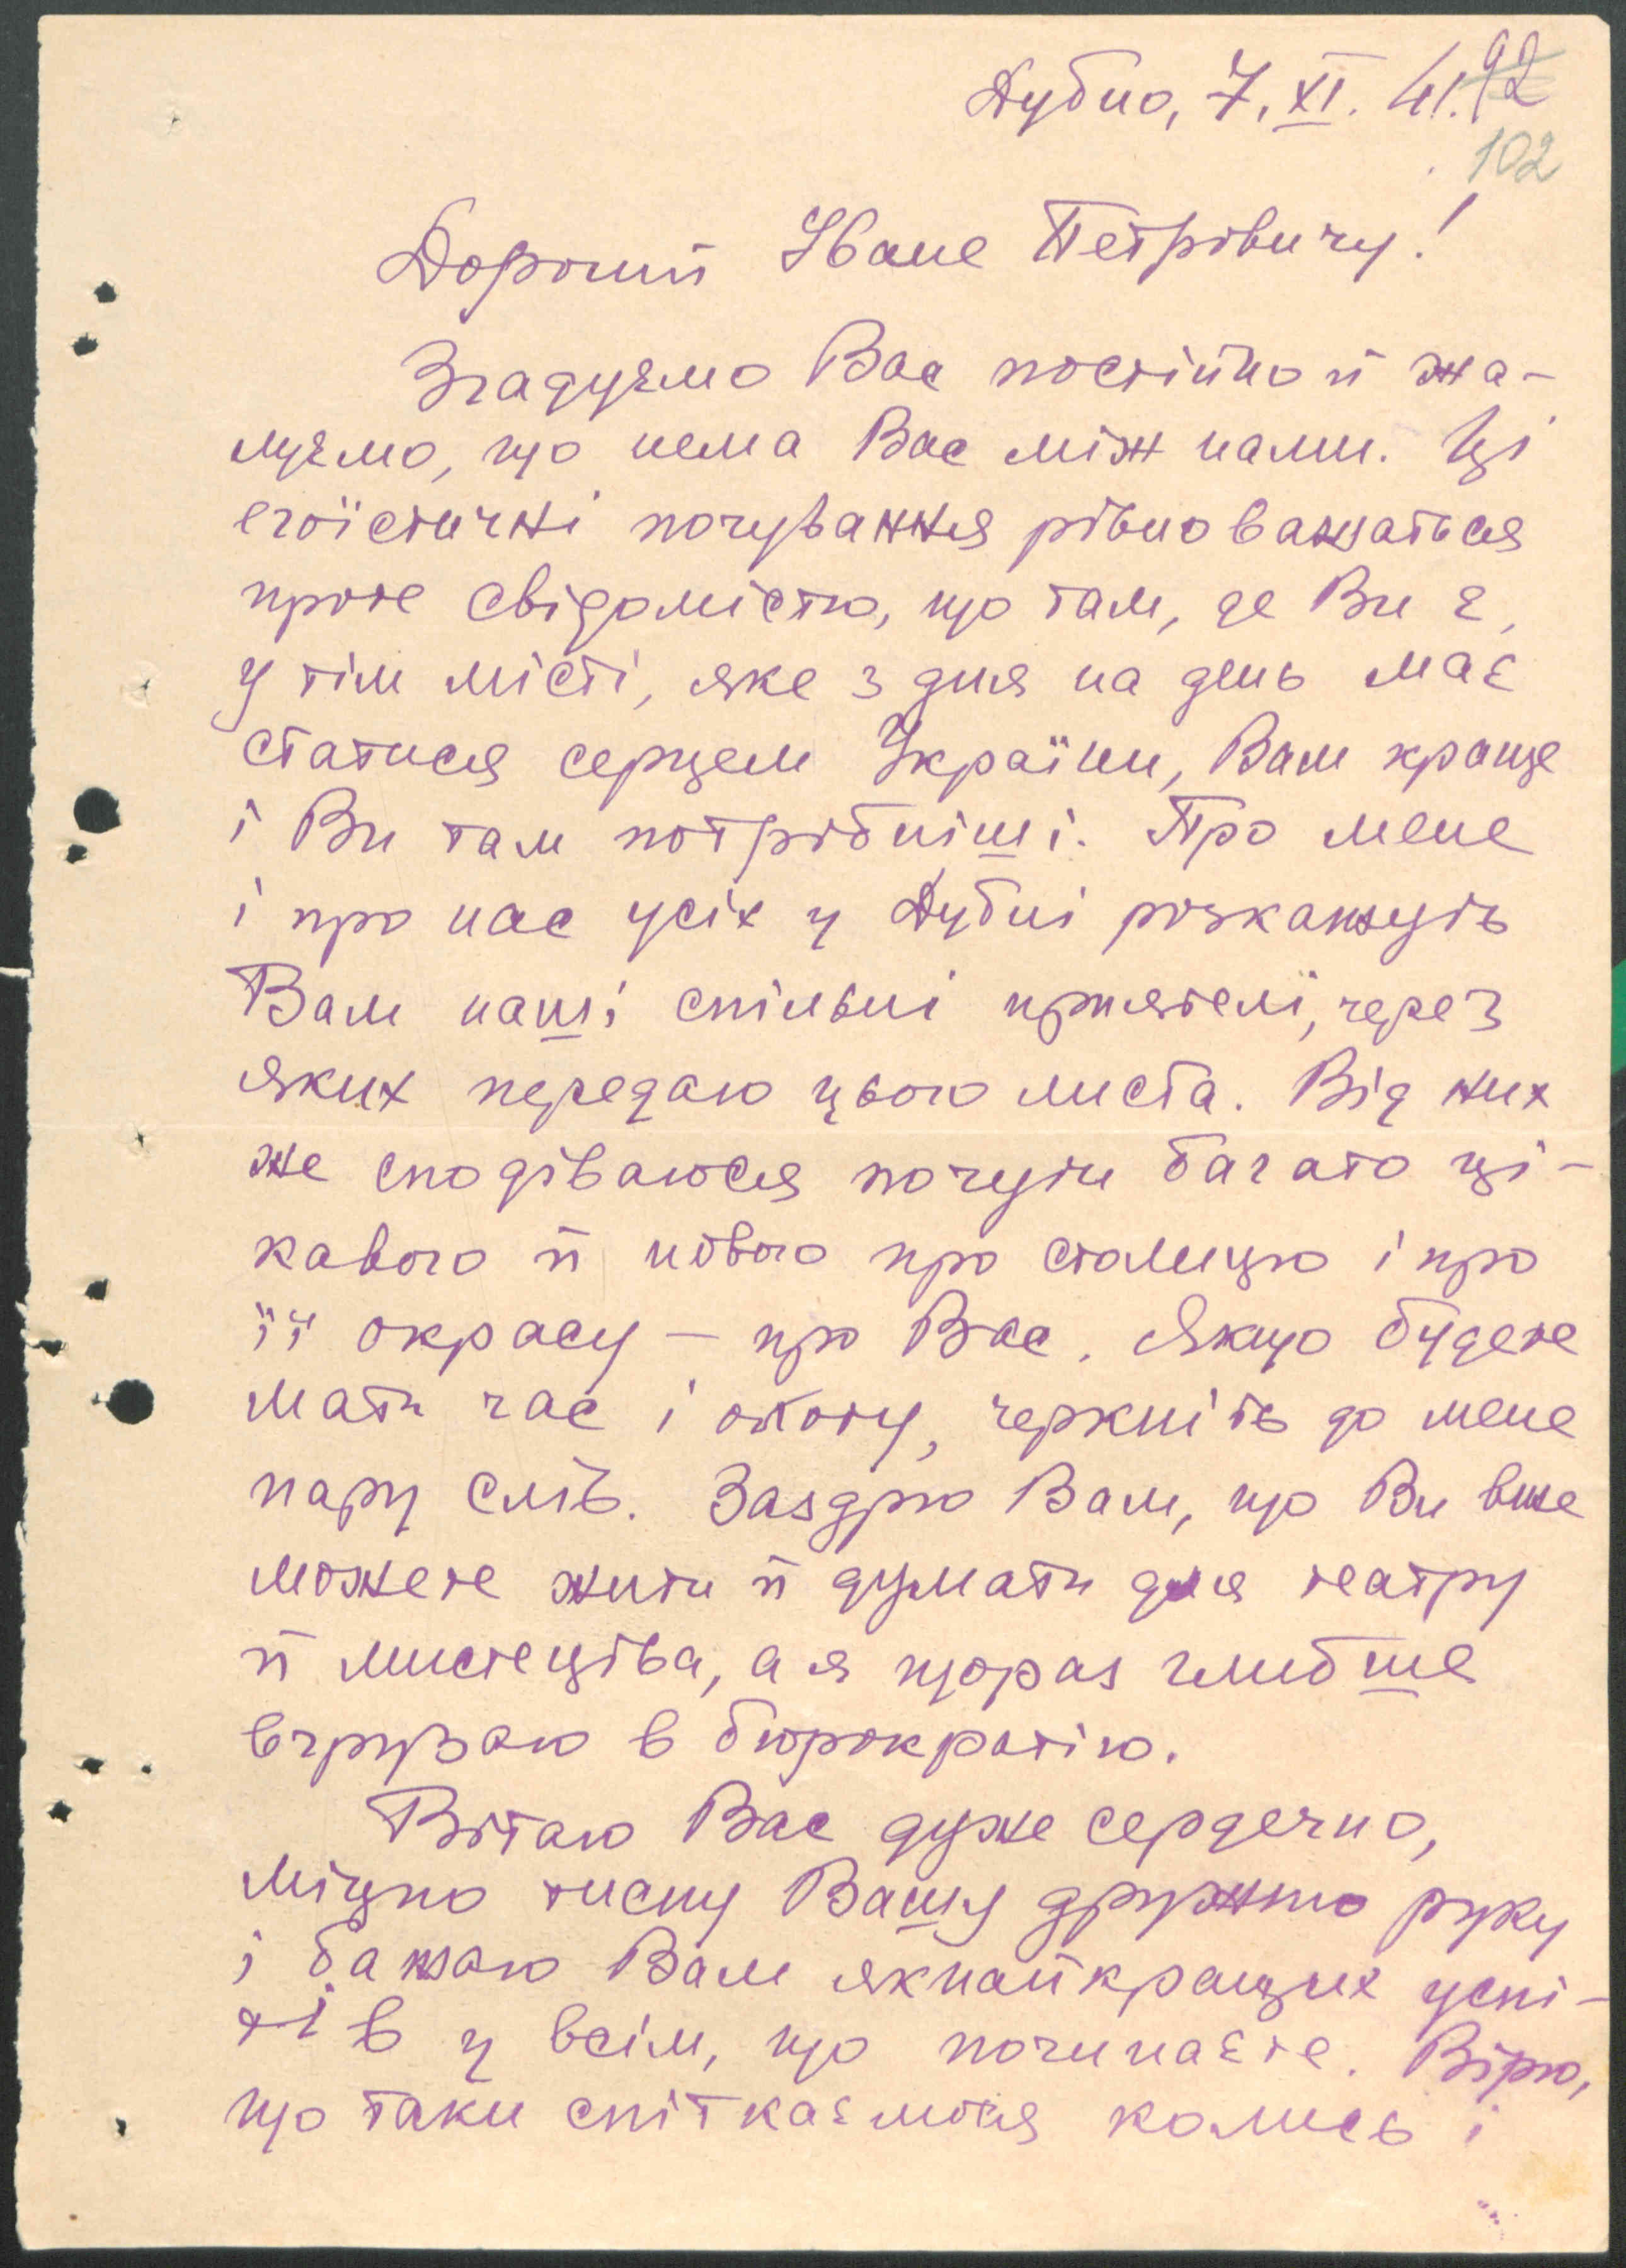 Дубно, 7. XI. 41.
92
102
Дорогий Іване Петровичу!
Згадуємо Вас постійно й жа-
луємо, що нема Вас між нами. Ці
егоїстичні почування рівноважаться
проте свідомістю, що там, де Ви є,
у тім місті, яке з дня на день має
статися серцем України, Вам краще
і Ви там потрібніші. Про мене
і про нас усіх у Дубні розкажуть
Вам наші спільні приятелі, через
яких передаю цього листа. Від них
же сподіваюся почути багато ці-
кавого й нового про столицю і про
її окрасу — про Вас. Якщо будете
мати час і охоту, черкніть до мене
пару слів. Заздрю Вам, що Ви вже
можете жити й думати для театру
й мистецтва, а я щораз глибше
вгрузаю в бюрократію.
Вітаю Вас дуже сердечно,
міцно тисну Вашу дружню руку
і бажаю Вам якнайкращих успі-
хів у всім, що починаєте. Вірю,
що таки спіткаємося колись і